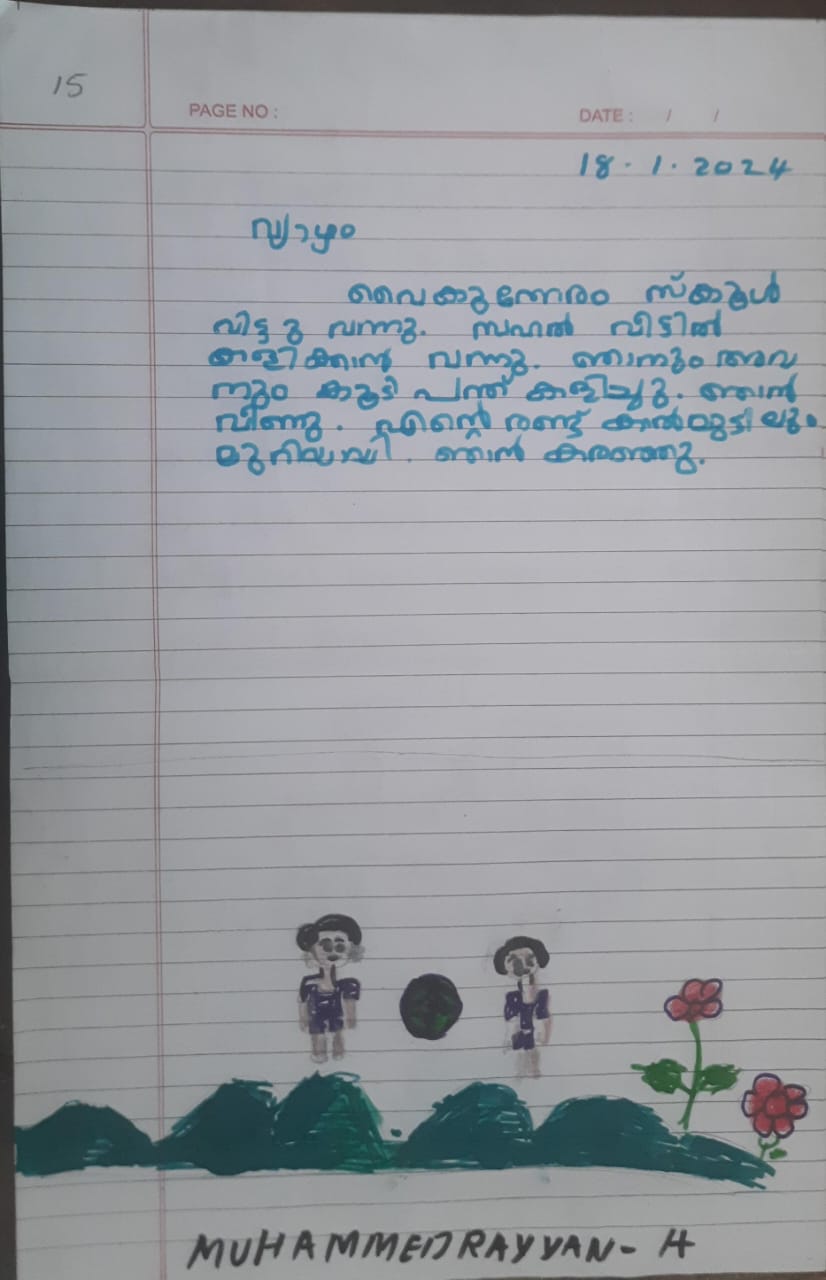 15
PAGE NO :
DATE : / /
18.1.2024
വ്യാഴം
വൈകുന്നേരം സ്കൂൾ
വിട്ടു വന്നു. സഹൽ വീട്ടിൽ
കളിക്കാൻ വന്നു. ഞാനും അവ
നും കൂടി പന്ത് കളിച്ചു. ഞാൻ
വീണു. എന്റെ രണ്ട് കാൽമുട്ടിലും
മുറിയായി. ഞാൻ കരഞ്ഞു.
MUHAMMED RAYYAN - H